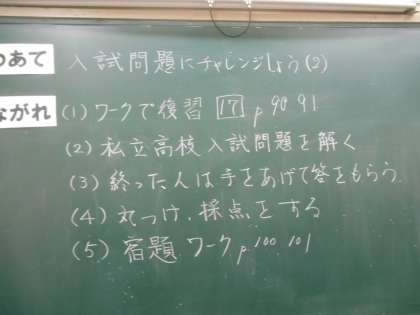 のあて 入試問題にチャレンジしよう(2)
ながれ (1) ワークで復習 17 p 90 91
(2) 私立高校入試問題を解く
(3) 終った人は手をあげて答をもらう
(4) 丸つけ、採点をする
(5) 宿題 ワーク p.100.101